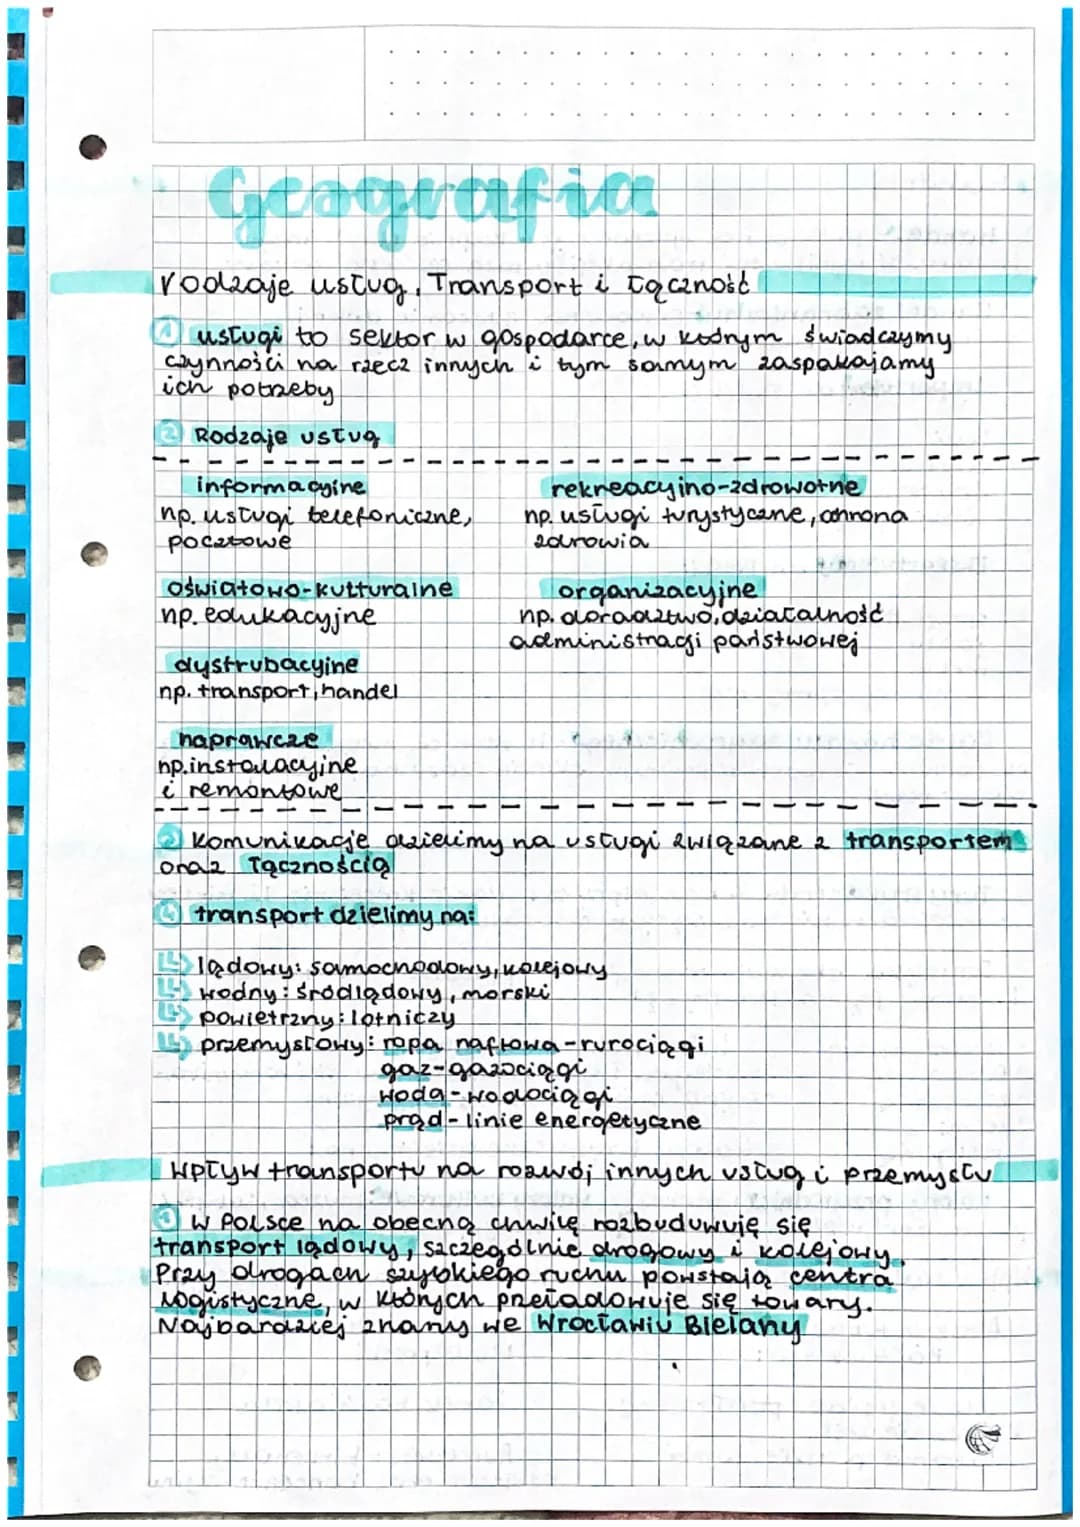 Geografia
rodzaje usług. Transport i łączność
1 usługi to sektor w gospodarce, w którym świadczymy
czynności na rzecz innych i tym samym zaspakajamy
ich potrzeby
2 Rodzaje usług
informacyjne
np. usługi telefoniczne,
pocztowe
rekreacyjno-zdrowotne
np. usługi turystyczne, ochrona
zdrowia
oświatowo-kulturalne
np. edukacyjne
organizacyjne
np. doradztwo, działalność
administracji państwowej
dystrubacyjne
np. transport, handel
naprawcze
np. instalacyjne
i remontowe
Komunikację dzielimy na usługi związane z transportem
oraz łącznością
4 transport dzielimy na:
lądowy: samochodowy, kolejowy
wodny: śródlądowy, morski
powietrzny: lotniczy
przemysłowy: ropa naftowa - rurociągi
gaz - gazociągi
woda - wodociągi
prąd - linie energetyczne
Wpływ transportu na rozwój innych usług i przemysłu
1 W Polsce na obecną chwilę rozbuduwuję się
transport lądowy, szczególnie drogowy i kolejowy.
Przy drogach szybkiego ruchu powstają centra
logistyczne, w których przeładowuje się towary.
Najbardziej znany we Wrocławiu Bielany